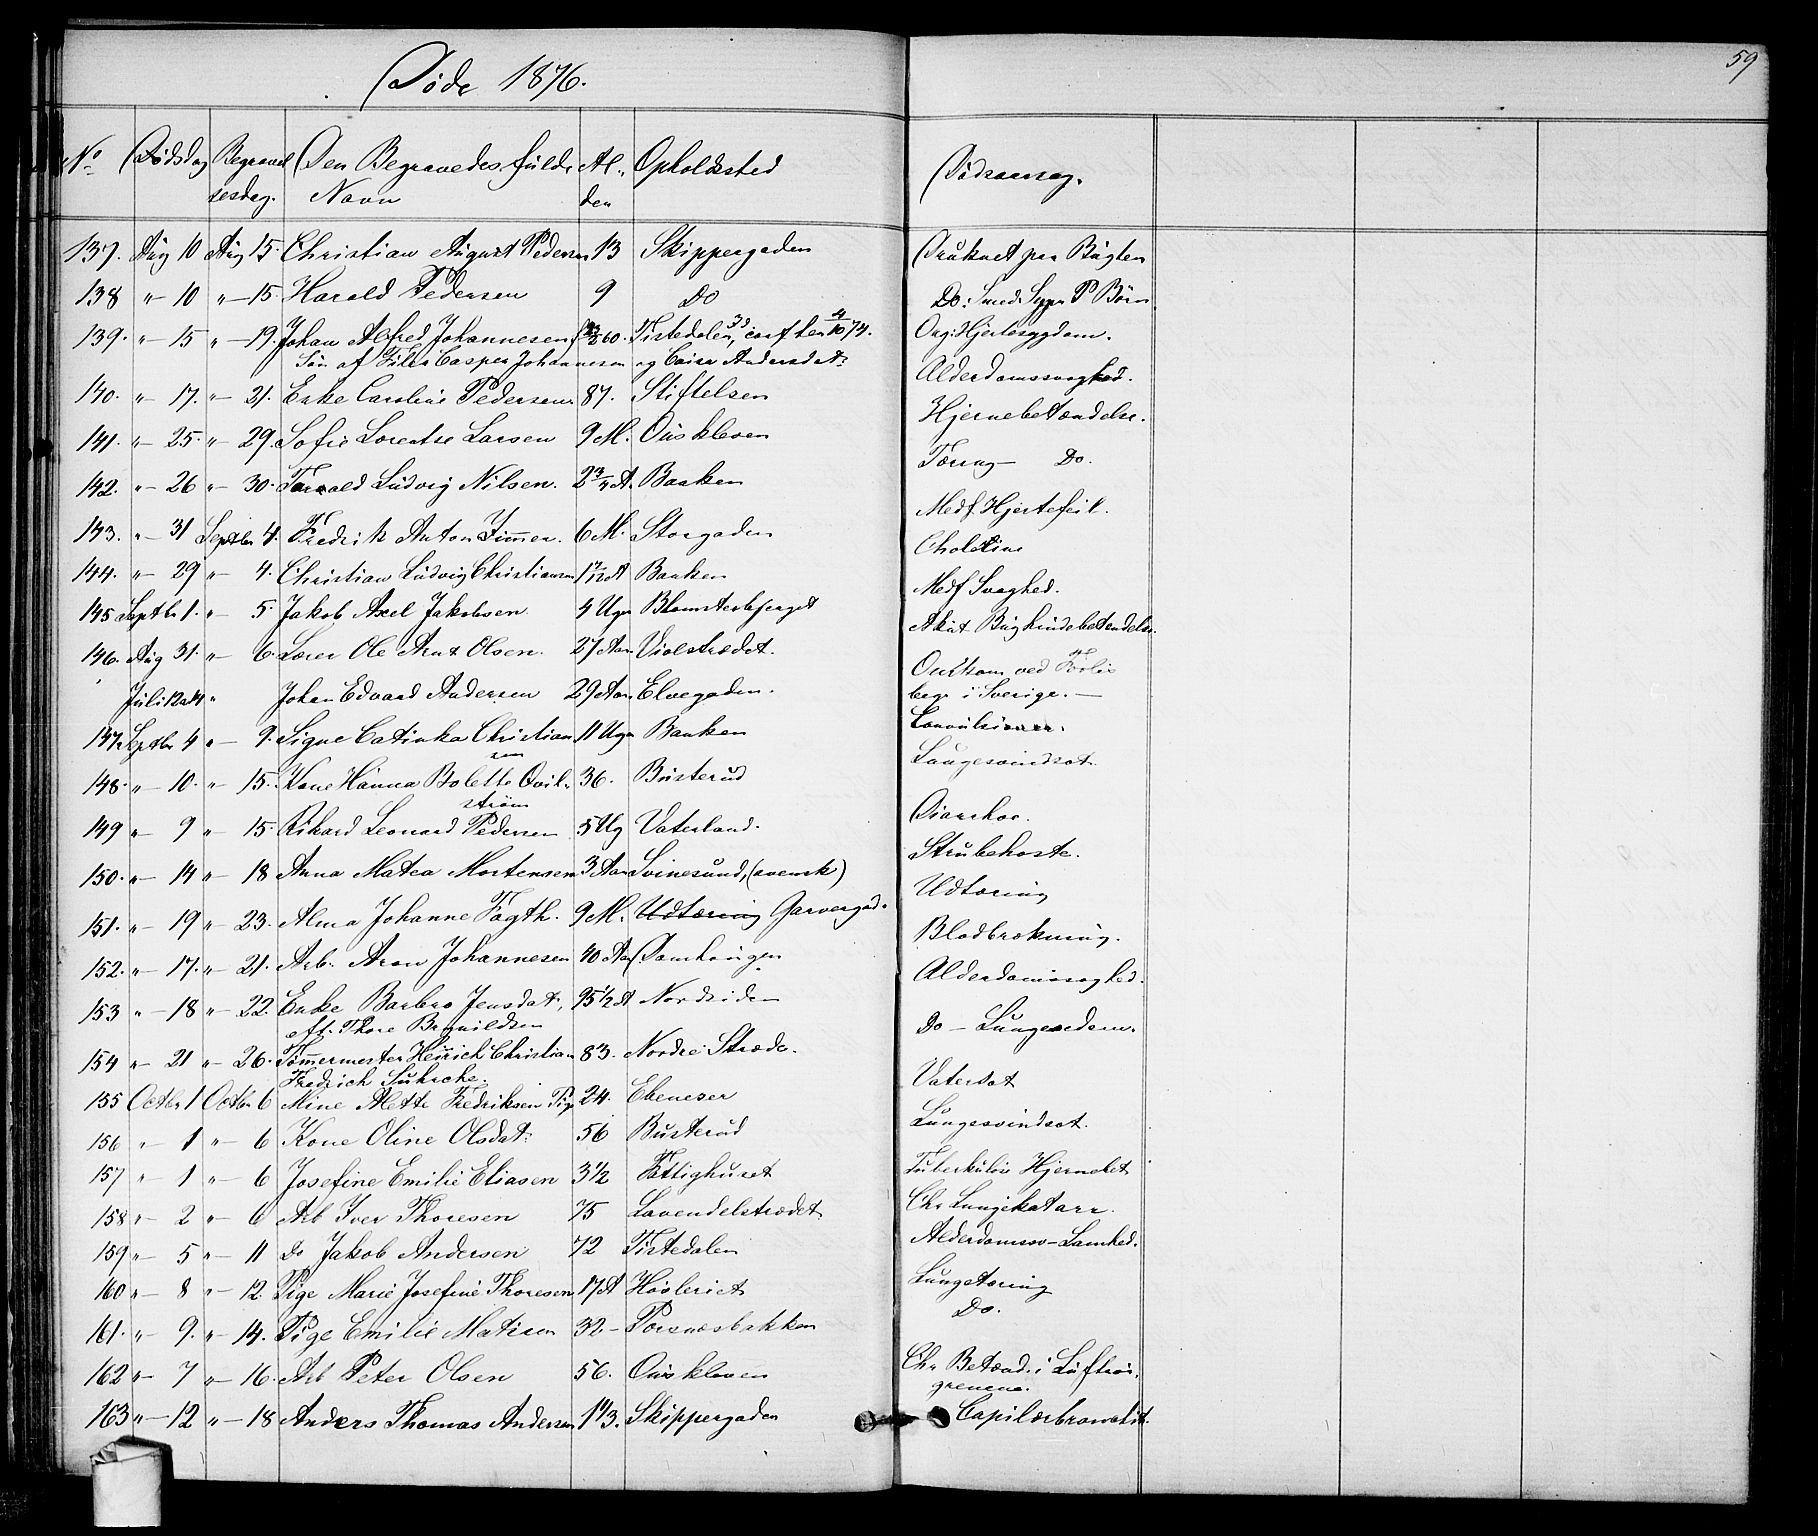 Døde 1876.
59
No Dødsdag Begravel Den Begravedes fulde Al- Opholdssted Dødsaarsag.
sesdag. Navn den
137. Aug 10 Aug 15. Christian August Pedersen 13 Skippergaden Druknet paa Bugten
138 " 10 " 15. Harald Pedersen 9 Do Do.
139. " 15 " 19. Johan Alfred Johannesen Tistedalen, conf den 4/10 74. Org: Hjertesygdom.
Søn af Casper Johannesen og Andersdat:
140. " 17. " 21. Enke Caroline Pedersen 87. Stiftelsen Alderdomssvaghed.
141. " 25. " 29. Sofie Lorentse Larsen 9 M. Ouskleven Hjernebetændelse.
142. " 26 " 30. Torvald Ludvig Nilsen. 2 3/4 A. Banken Tæring Do.
143. " 31 Septbr 4. Fredrik Anton Zimmer. 6 M. Storgaden Medf. Hjertefeil.
144. " 29 " 4. Christian Ludvig Christiansen 1 7/12 A Banken Cholerine
145 Septbr 1. " 5. Jakob Axel Jakobsen 4 Uger Blomsterbjerget Medf Svaghed.
146. Aug 31. " 6. Ole Arnt Olsen. 27 Aar Violstrædet. Akut Bughindebetændelse.
Juli " Johan Edvard Andersen 29 Aar Elvegaden. Omkom ved Forlis
begr i Sverige.
147. Septbr 4 " 9. Signe Catinka Christian 11 Uger Banken Convulsioner.
sen
148. " 10. " 15. Kone Hanna Bolette Qvil- 36. Busterud Lungesvindsot.
strøm
149 " 9 " 15. Rikard Leonard Pedersen 5 Ug Vaterland. Diarrhoe.
150. " 14 " 18 Anna Matea Mortensen 3 Aar Svinesund, (svensk) Strubehoste.
151. " 19 " 23. Alma Johanne Fagth. 9 M. Udtæring Garvergad. Udtæring
152. " 17. " 21. Arb. Aron Johannesen 40 Aar Damhaugen Blodbrækning.
153 " 18 " 22. Enke Barbro Jensdat. 95 1/2 A Nordsiden Alderdomssvaghed.
eft. Thore Brynildsen
154 " 21 " 26. Tømmermester Heinrich Christian 83. Nordre Stræde. Do - Lungeødem.
Fredrich Suhrcke.
155 Octbr 1 Octbr 6 Mine Alette Fredriksen Pige 24. Ebeneser Vatersot
156 " 1 " 6 Kone Oline Olsdat: 56 Busterud Lungesvindsot.
157 " 1 " 6 Josefine Emilie Eliasen 3 1/2 Fattighuset Tuberkuløs Hjernebet
158 " 2 " 6 Arb Iver Thoresen 75 Lavendelstrædet Chr. Lungekatarr.
159 " 5 " 11 Do Jakob Andersen 72 Tistedalen Alderdomssv- Lamhed.
160 " 8 " 12. Pige Marie Josefine Thoresen 17 A Høvleriet Lungetæring
161. " 9. " 14. Pige Emilie Matisen 32 - Porsnæsbakken Do.
162 " 7 " 16. Arb Peter Olsen 56. Ouskleven Chr Betænd. i Luftrør-
grenene.
163 " 12 " 18 Anders Thomas Andersen Skippergaden Capilærbronchit.